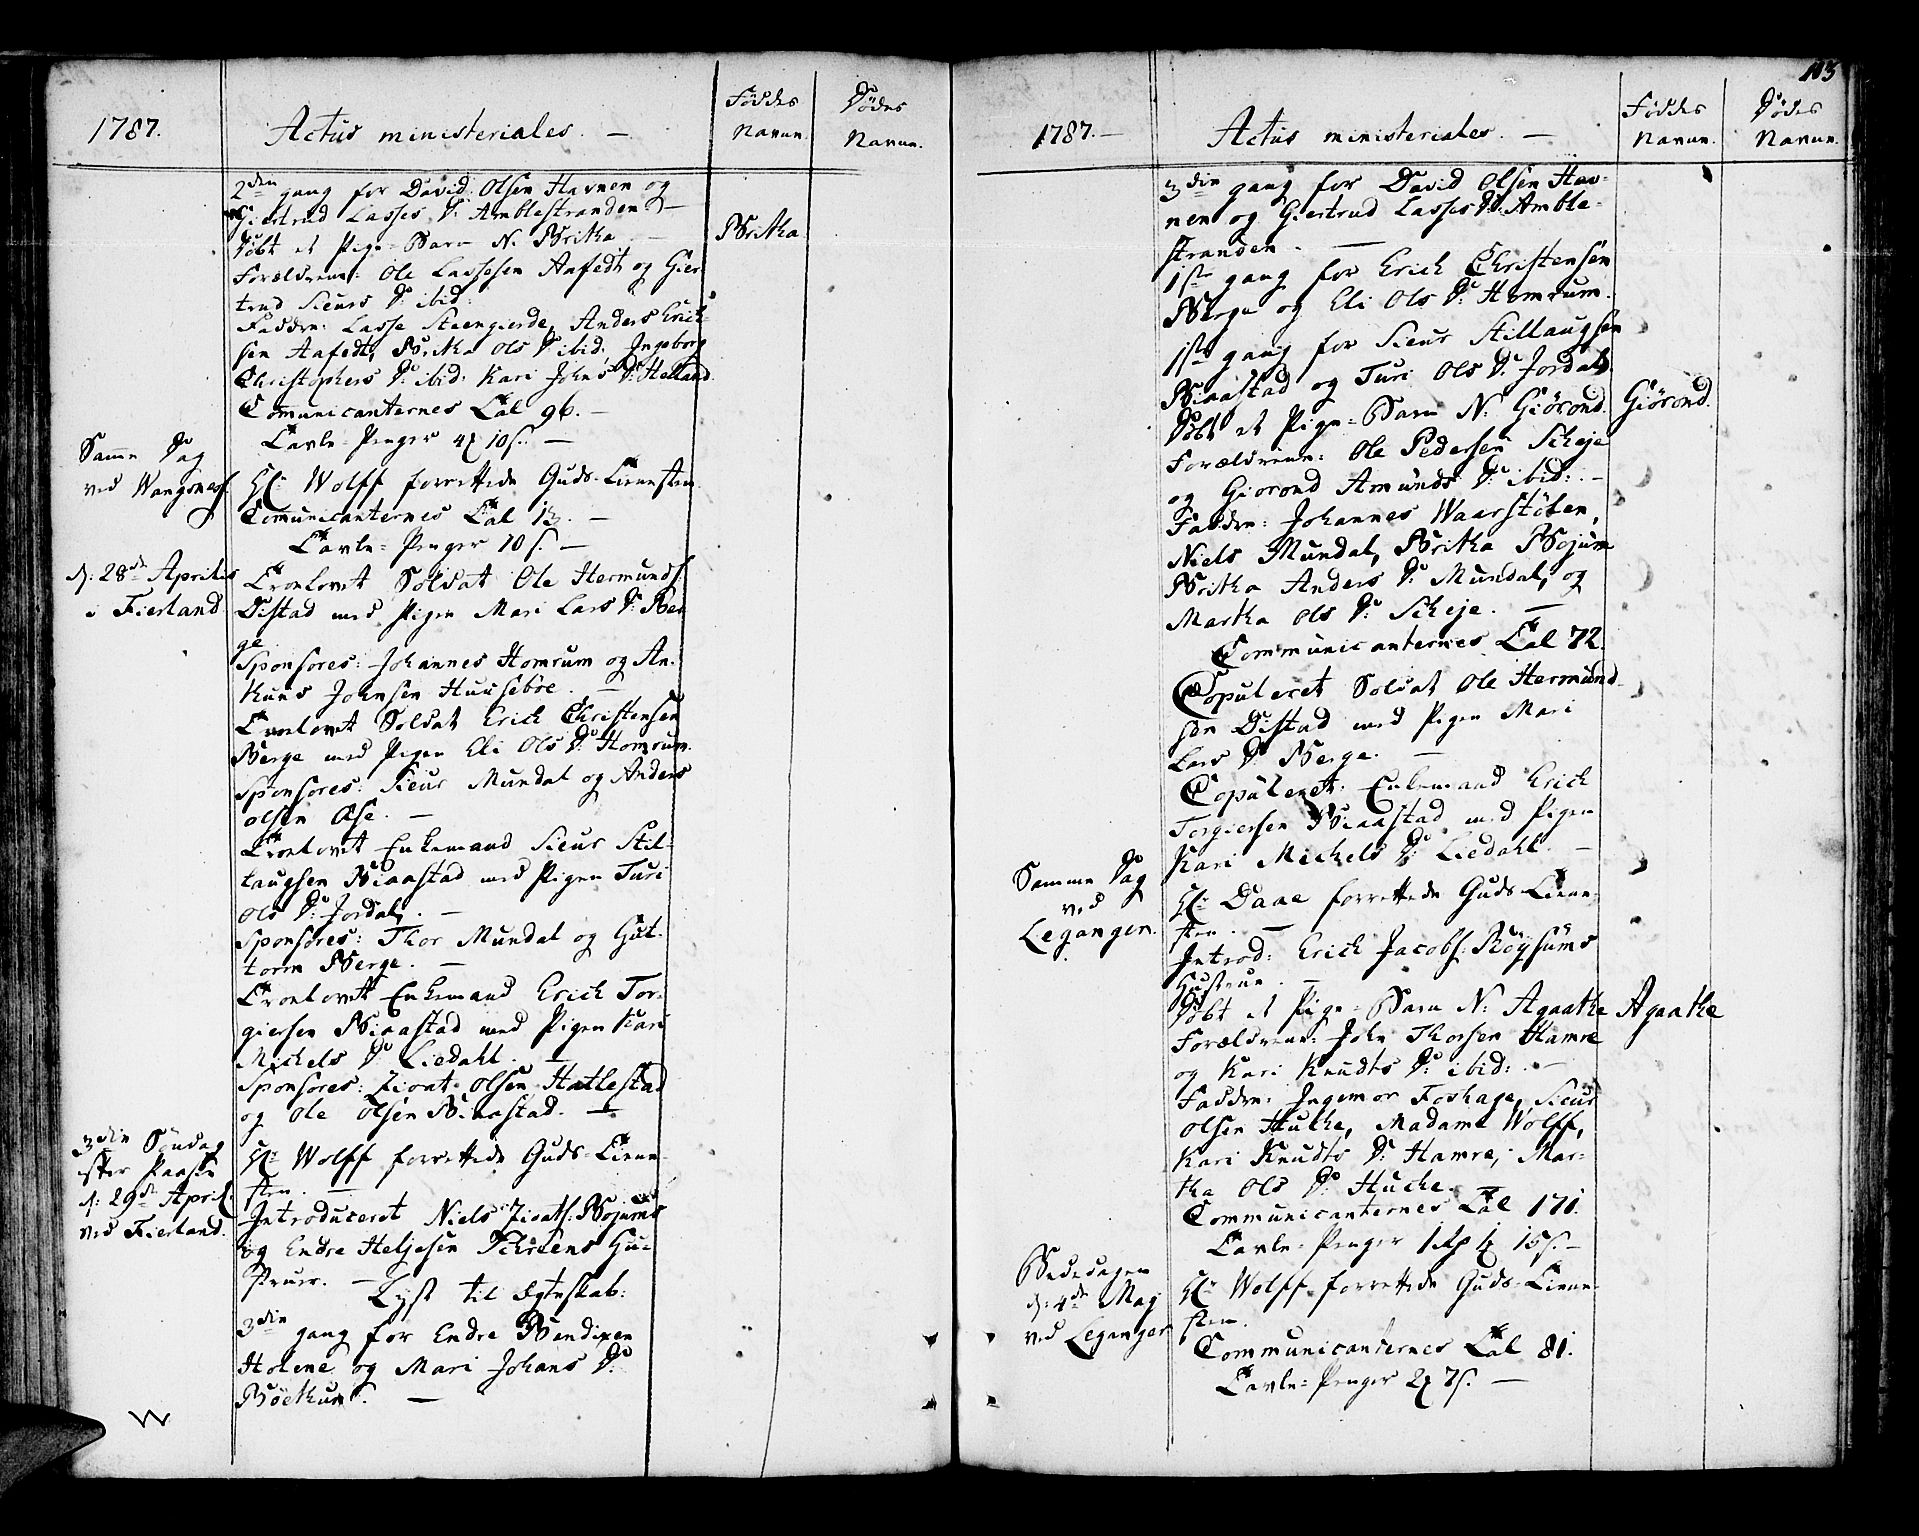 1787.
Actus ministeriales. —
Føddes Navne.
Dødes Navne.
2den gang for David Olsen Havnen og
Giertrud Lasses D: Amblestranden —
Døbt et Pige-Barn N. Britha —
Britha
Forældrene: Ole Lassesen Aafedt og Gier
trud Sieurs D: ibid:
Faddre: Lasse Steengierde, Anders Erich
sen Aafedt, Britha Ols D: ibid: Ingeborg
Christophers D: ibid: Kari Johns D: Helland
Communicanternes Tal 96. —
Tavle-Penger 4 10 s. —
Samme Dag
ved Wangsnes.
Hr Wolff forrettede Guds-Tienesten
Comunicanternes Tal 13. —
Tavle-Penger 10 s. —
d: 28de Aprilis
i Fierland
Trolovet Soldat Ole Hermunds.
Distad med Pigen Mari Lars D: Ber
ge
Sponsores: Johannes Homrum og An-
kuns Johnsen Huusebøe. —
Trolovet Soldat Erich Christensen
Berge med Pigen Eli Ols D: Homrum.
Sponsores: Sieur Mundal og Anders
Olsen Ase. —
Trolovet Enkemand Sieur Stil-
laugsen Biaastad med Pigen Turi
Ols D: Jordal. —
Sponsores: Thor Mundal og Gut-
torm Berge. —
Trolovet Enkemand Erich Tor-
giersen Biaastad med Pigen Kari
Michels D: Liedahl. —
Sponsores: Ziovat Olsen Hatlestad
og Ole Olsen Biaastad. —
3die Søndag
efter Paaske
d: 29de April.
ved Fierland.
Hr Wolff forrettede Guds-Tiene-
sten. —
Introduceret Niels Ziovats: Bojums
og Endre Heljesen Schreens Hu-
struer. —
Lyst til Ægteskab:
3die gang for Endre Bendixen
Holene og Mari Johans D:
Bøethun. —
103
1787. —
Actus ministeriales. —
Føddes Navne.
Dødes Navne.
3die gang for David Olsen Hav-
nen og Giertrud Lasses D: Amble-
stranden. —
1ste gang for Erich Christensen
Berge og Eli Ols D: Homrum.
1ste gang for Sieur Stillaugsen
Biaastad og Turi Ols D: Jordal.
Døbt et Pige-Barn N: Giörond.
Giörond.
Forældrene: Ole Pedersen Scheje
og Giorond Amunds D: ibid: —
Faddre: Johannes Waarstölen,
Niels Mundal, Britha Bojum
Britha Anders D: Mundal, og
Martha Ols D: Scheje. —
Communicanternes Tal 72.
Copuleret Soldat Ole Hermund-
sen Distad med Pigen Mari
Lars D: Berge. —
Copuleret: Enkemand Erich
Torgiersen Biaastad med Pigen
Kari Michels D: Liedahl. —
Samme Dag
ved
Leganger.
Hr Daae forrettede Guds-Tiene-
sten. —
Introd: Erich Jacobs: Röysums
Hustrue. —
Døbt et Pige-Barn N: Agaathe
Agaathe
Forældrene: John Thorsen Hamre
og Kari Knudts D: ibid: —
Faddre: Ingemor Foshage, Sieur
Olsen Huke, Madame Wolff,
Kari Knudts D: Hamre, Mar-
tha Ols D: Huche.
Communicanternes Tal 171.
Tavle-Penger 1 Rp 15 s. —
Bededagen
d: 4de Maj
ved Leganger
Hr Wolff forrettede Guds-Tiene-
sten.
Communicanternes Tal 81.
Tavle-Penger 2 7 s. —